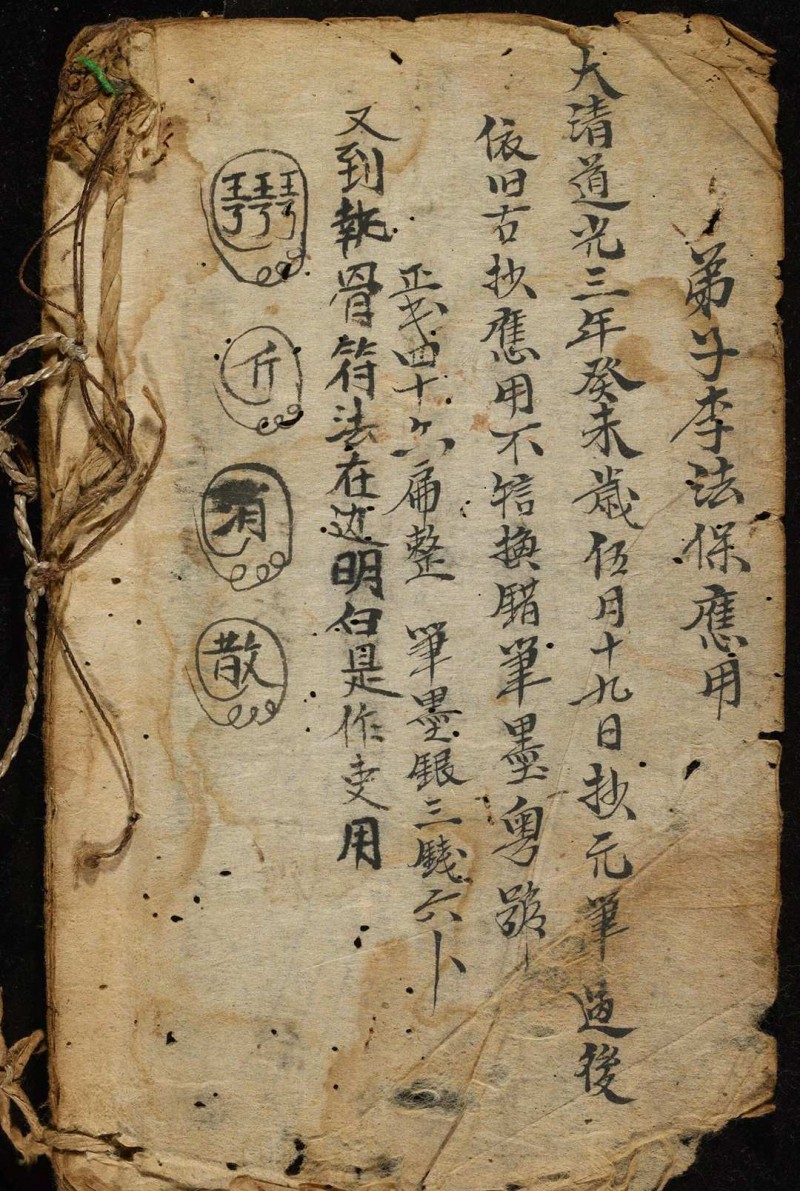 弟子李法保應用
大清道光三年癸未歲伍月十九日抄元筆過後
依旧古抄應用不信換錯筆墨粵號
四十六扁整 筆墨銀三錢六卜
又到執骨符法在边明白是作吏用
斤
有
散